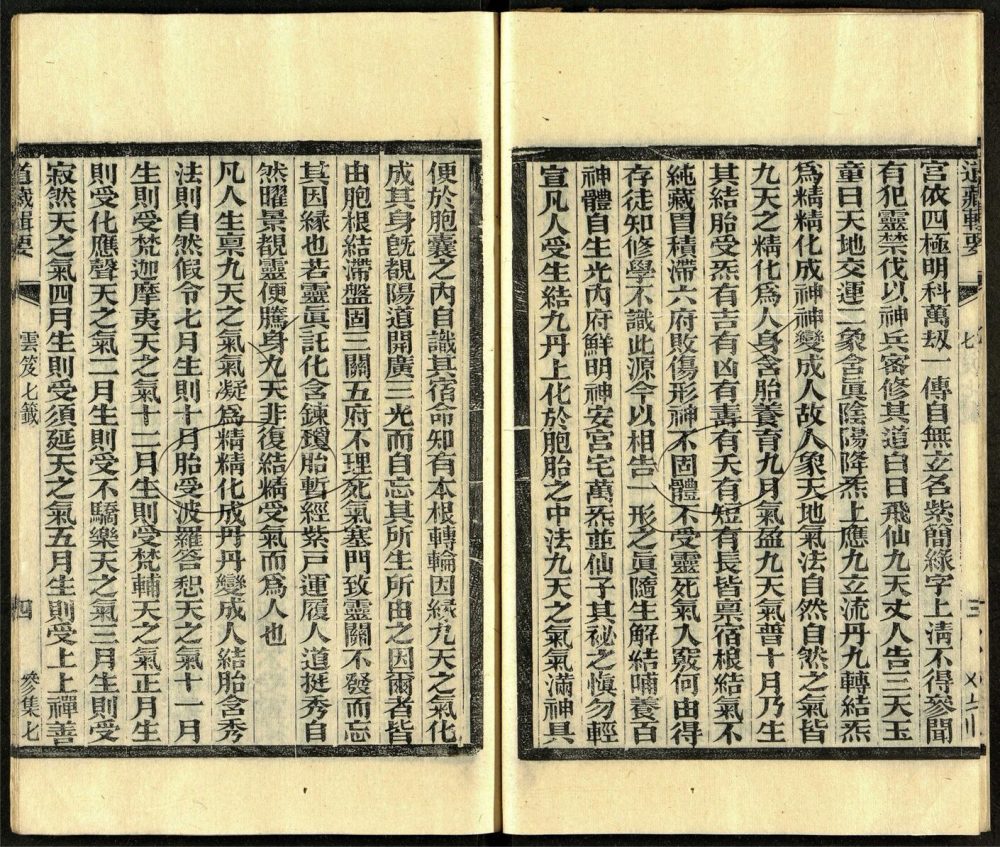 道藏輯要
七
三
宮依四極明科萬劫一傳自無立名紫簡綠字上清不得參聞
有犯靈禁伐以神兵密修其道白日飛仙九天丈人告三天玉
童曰天地交運二象含眞陰陽降炁上應九立流丹九轉結炁
爲精精化成神神變成人故人象天地氣法自然自然之氣皆
九天之精化爲人身含胎養育九月氣盈九天氣普十月乃生
其結胎受炁有吉有凶有壽有夭有短有長皆禀宿根結氣不
純藏胃積滯六府敗傷形神不固體不受靈死氣入竅何由得
存徒知修學不識此源今以相告一形之眞隨生解結哺養百
神體自生光內府鮮明神安宮宅萬炁並仙子其祕之愼勿輕
宣凡人受生結九丹上化於胞胎之中法九天之氣氣滿神具
便於胞囊之內自識其宿命知有本根轉輪因緣九天之氣化
成其身旣覩陽道開廣三光而自忘其所生所由之因爾者皆
由胞根結滯盤固三關五府不理死氣塞門致靈關不發而忘
其因緣也若靈眞託化含鍊瓊胎暫經紫戸運履人道挺秀自
然曜景覩靈便騰身九天非復結精受氣而爲人也
凡人生禀九天之氣氣凝爲精精化成丹丹變成人結胎含秀
法則自然假令七月生則十月胎受波羅答恕天之氣十一月
生則受梵迦摩夷天之氣十二月生則受梵輔天之氣正月生
則受化應聲天之氣二月生則受不驕樂天之氣三月生則受
寂然天之氣四月生則受須延天之氣五月生則受上上禪善
道藏輯要
雲笈七籤
四
參集七